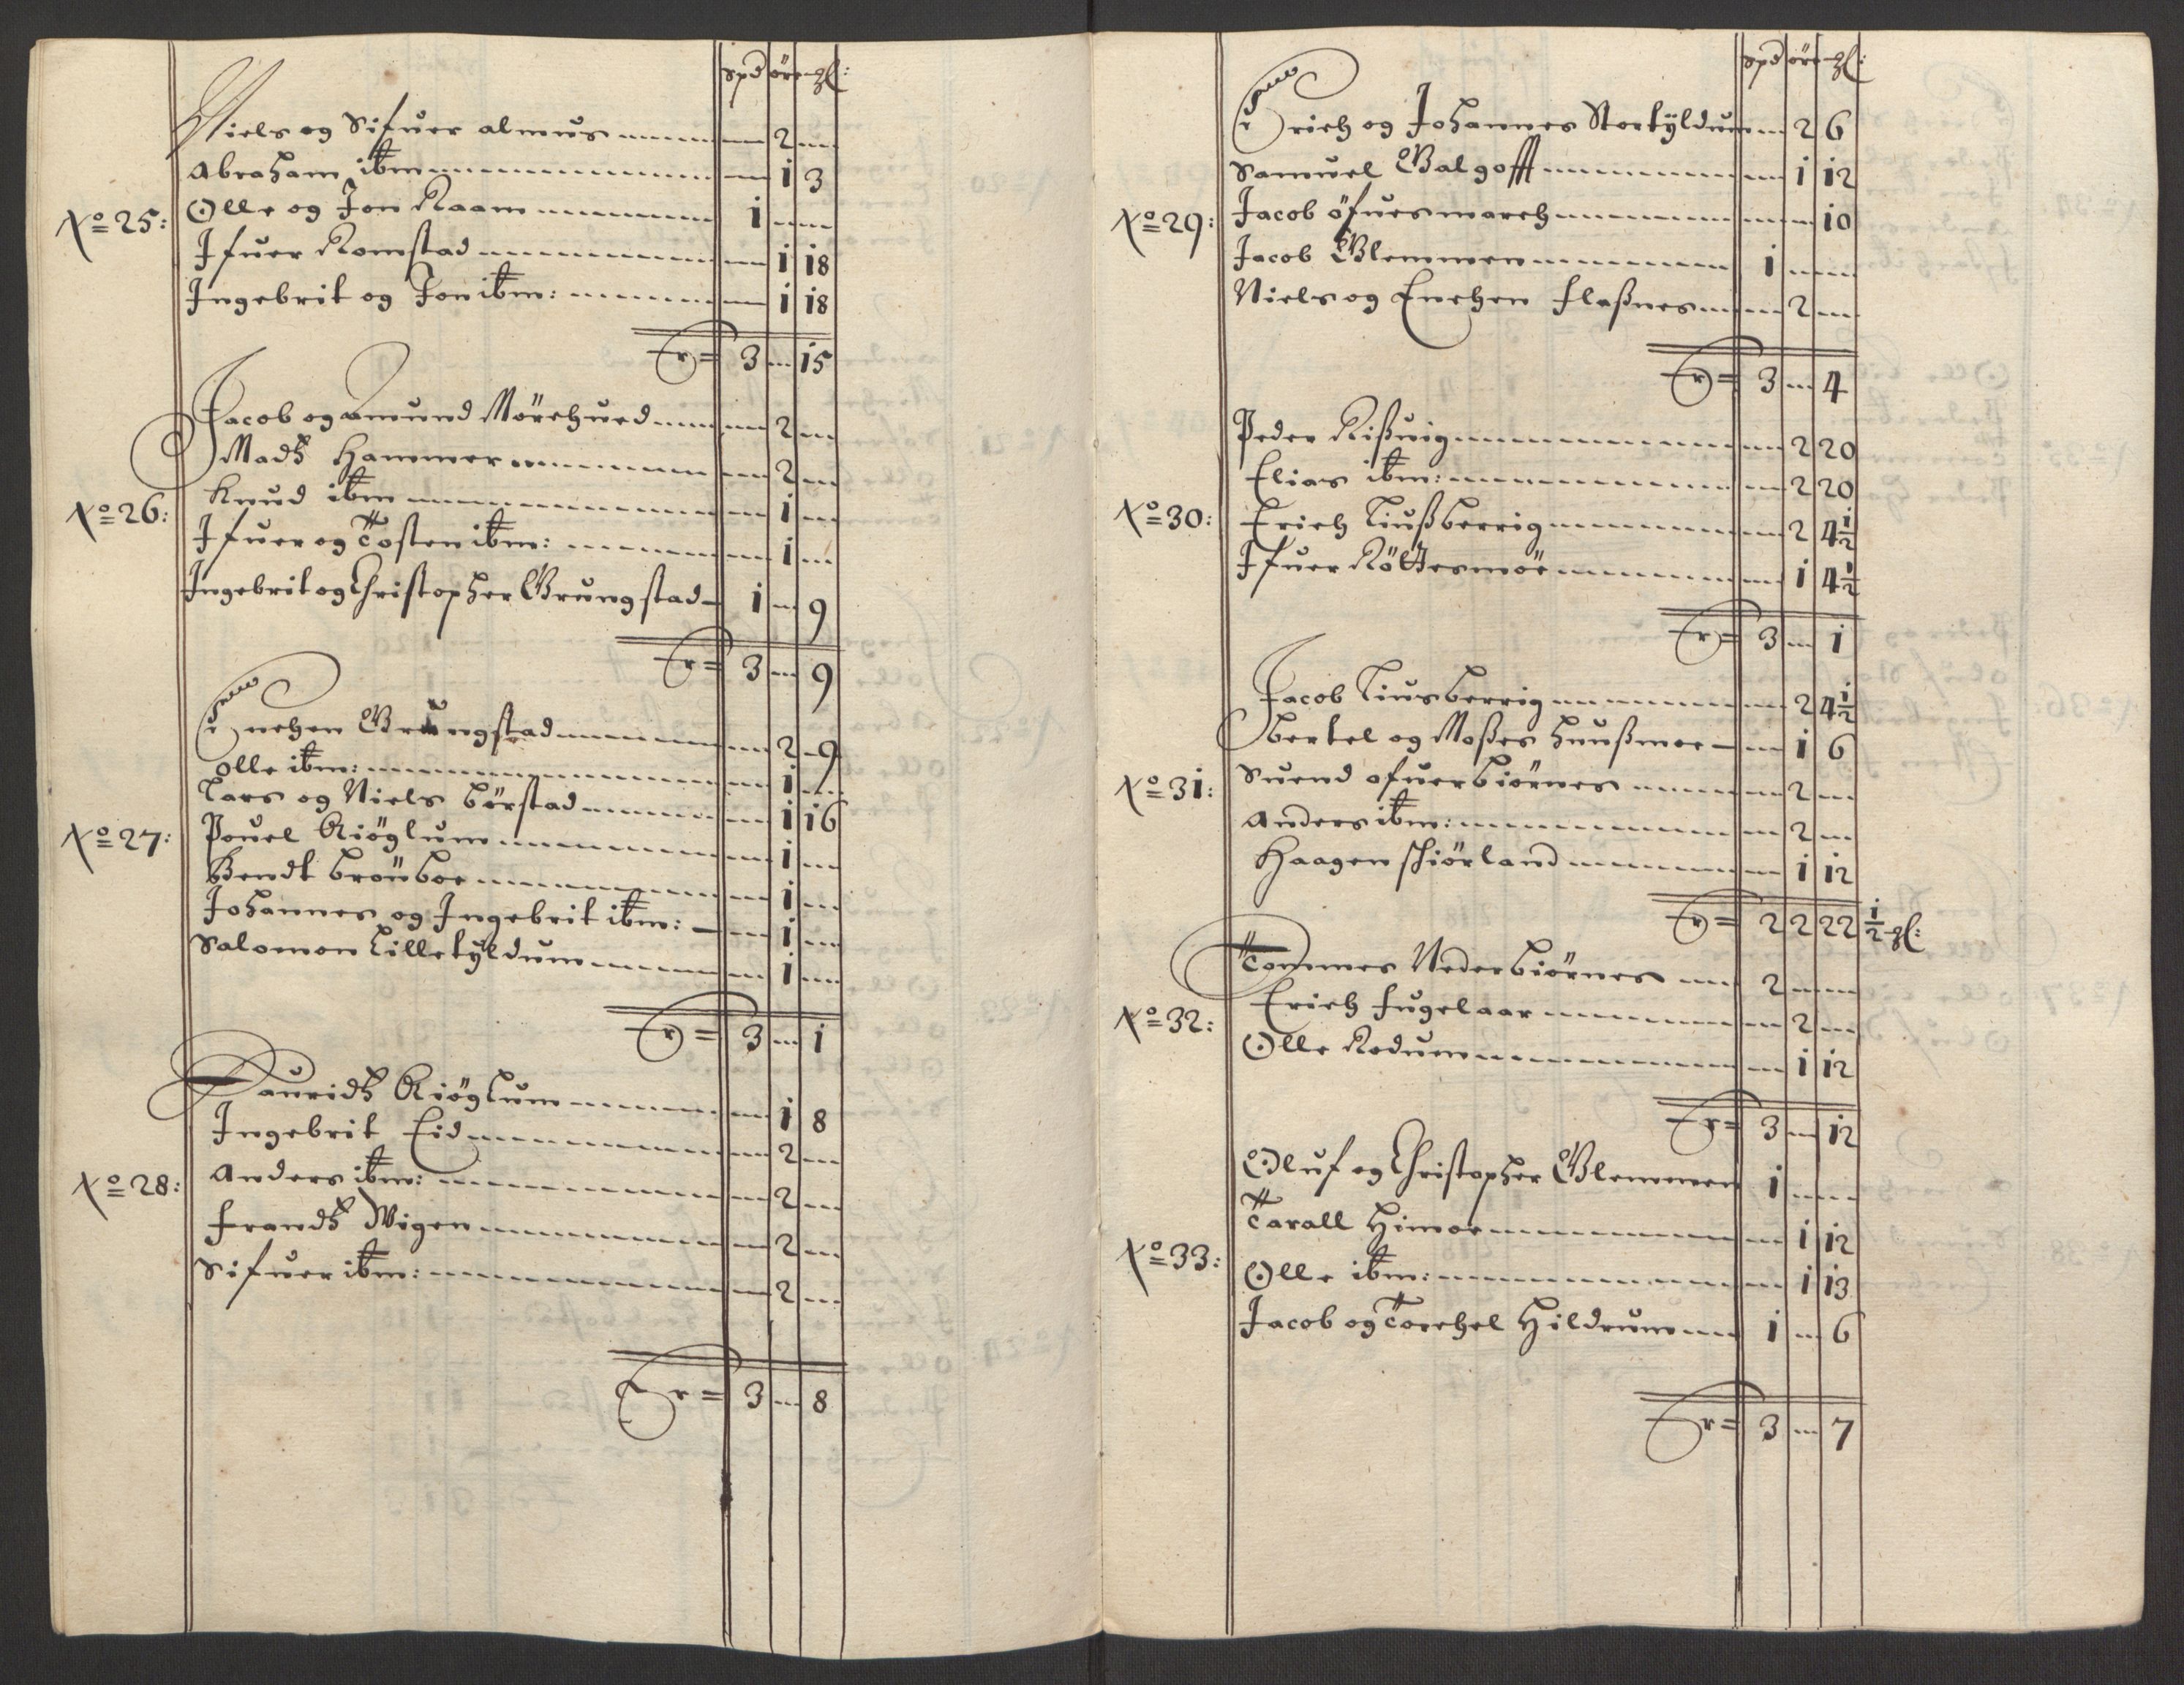 Spd øre gl:
Niels og Sifuer almus — 2 —
Abraham ibm — 1 3
No 25: Olle og Jon Raam 1 — —
Ifuer Romstad — 1 18
Ingebrit og Jon ibm: — 1 18
Er = 3 — 15
Jacob og Amund Mörchued — 2 —
Madtz Hammer — 2 —
No 26: Knud ibm — 1 —
Ifuer og Tosten ibm: — 1 —
Ingebrit og Christopher Grungstad 1 — 9
Er = 3 — 9
Enchen Grungstad — 2 9
Olle ibm: — 1 —
Lars og Niels börstad — 1 16
No 27: Pouel Kiöglum — 1 —
Bendt bröuboe — 1 —
Johannes og Ingebrit ibm: — 1 —
Salomon Lilletÿldum — 1 —
Er = 3 — 1
Lauridtz Kiöglum — 1 8
Ingebrit Eid — 2 —
No 28: Anders ibm: — 2 —
Frandtz Wigen — 2 —
Sifuer ibm: — 2 —
Er = 3 — 8
Spd øre gl:
Erich og Johannes Stortÿldum — 2 6
Samuel Galgofft — 1 12
No 29: Jacob öfuesmarch — — 10
Jacob Glemmen 1 — —
Niels og Enchen Flaßnes — 2 —
Er = 3 — 4
Peder Rißuig — 2 20
Elias ibm: — 2 20
No 30: Erich Liußberrig — 2 4½
Ifuer Röttesmöe — 1 4½
Er = 3 — 1
Jacob Liusberrig — 2 4½
Bertel og Moßes Huußmoe — 1 6
No 31: Suend ofuerbiörnes — 2 —
Anders ibm: — 2 —
Haagen schiörland — 1 12
Er = 2 2 22 ½ gl:
Tommes Nederbiörnes 2 — —
No 32: Erich Fugelaar — 2 —
Olle Rodum — 1 12
Er = 3 — 12
Oluf og Christopher Glemmen 1 — —
Tarall Himoe — 1 12
No 33: Olle ibm: — 1 13
Jacob og Torchel Hildrum 1 — 6
Er = 3 — 7